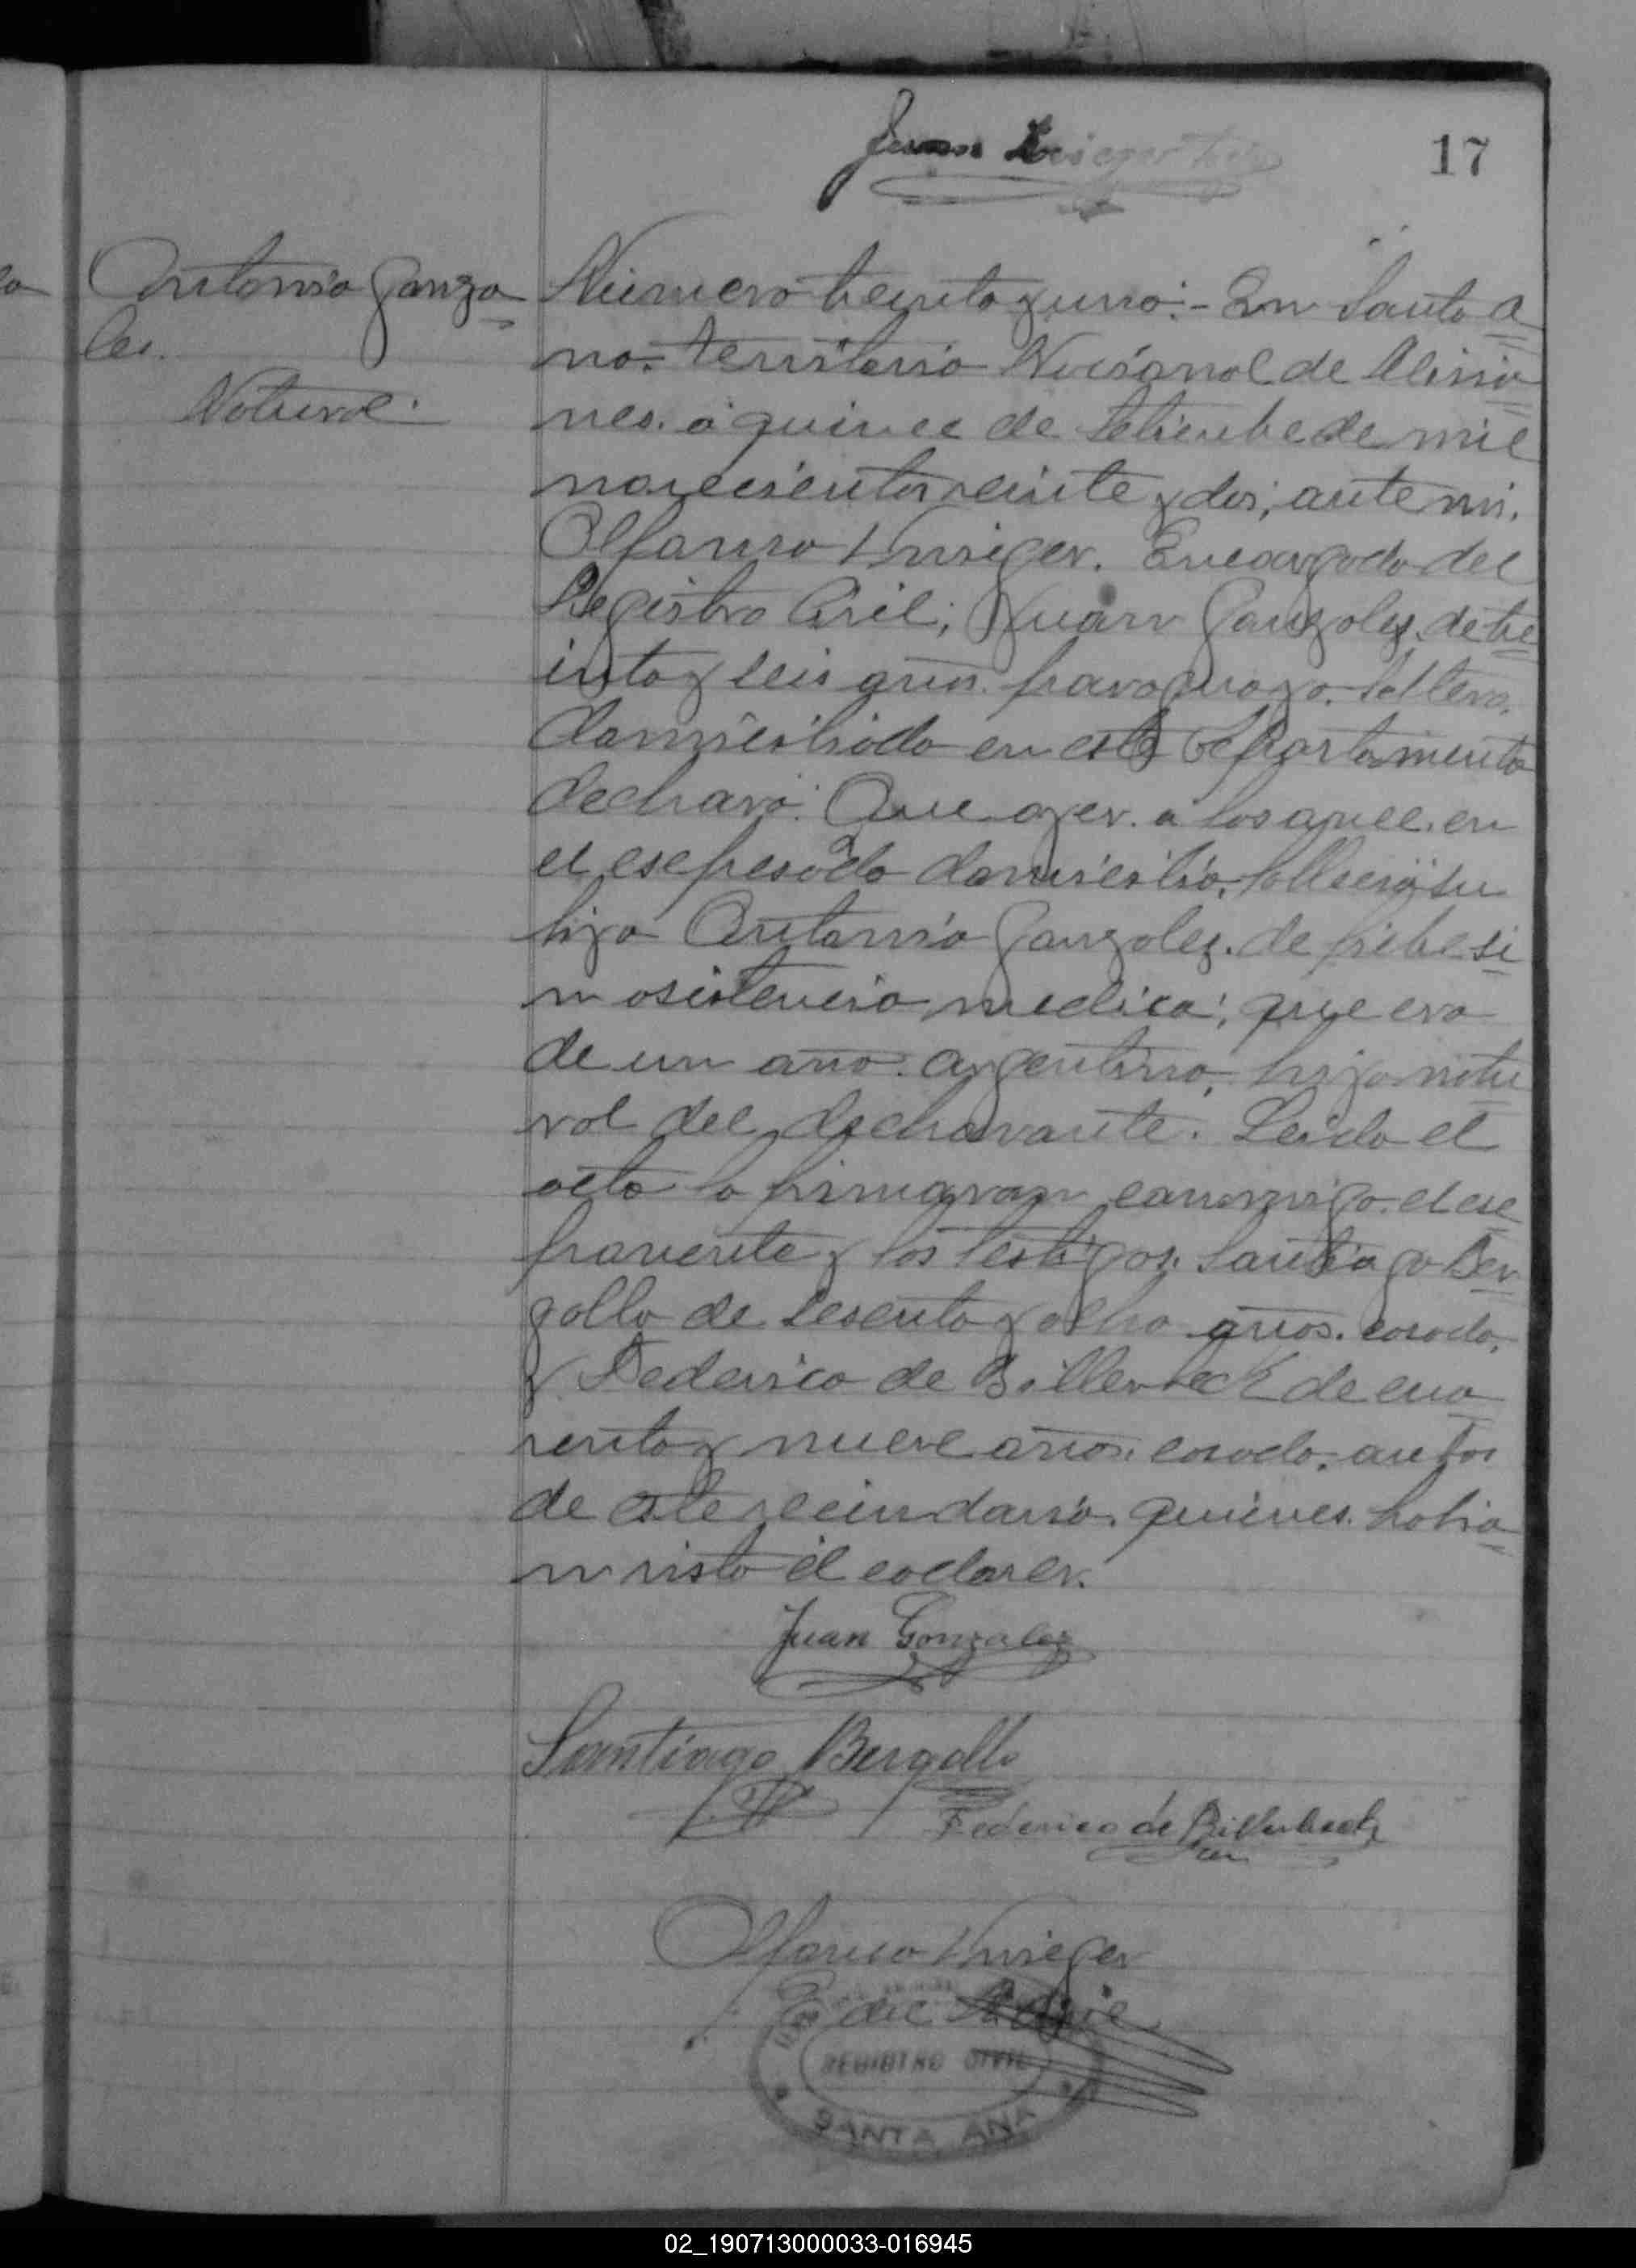 Juan
17
Antonio Gonza
les.
Natural.
Número treinta y uno:- En Santa A
na. Territorio Nacional de Misio
nes. á quince de Setiembre de mil
novecientos veinte y dos, ante mi.
Alfonso Krieger. Encargado del
Registro Civil; Juan Gonzales, de tre
inta y seis años. paraguayo. soltero.
domiciliado en este departamento
declaró: Que ayer. a las once. en
el espresado domicilio, falleció su
hijo Antonio Gonzales. de fiebre si
n asistencia medica; que era
de un año. argentino, hijo natu
ral del declarante. Leida el
acta la firmaron conmigo. el es
ponente y los testigos. Santiago Ber
gallo de sesenta y ocho años. casado,
y Federico de Billerbeck de cua
renta y nueve años. casado. ambos
de este vecindario. quienes. habia
n visto el cadaver.
Juan Gonzalez
Santiago Bergallo
Federico de Billerbeck
Alfonso Krieger
E. del R. Civil
REGISTRO CIVIL
SANTA ANA
02_190713000033-016945